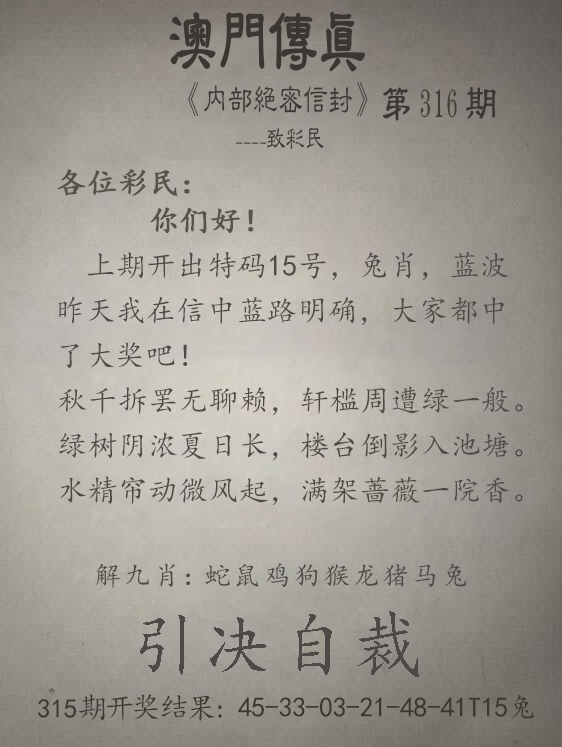 澳門傳真
《内部絕密信封》第316期
----致彩民
各位彩民：
你们好！
上期开出特码15号，兔肖，蓝波
昨天我在信中蓝路明确，大家都中
了大奖吧！
秋千拆罢无聊赖，轩槛周遭绿一般。
绿树阴浓夏日长，楼台倒影入池塘。
水精帘动微风起，满架蔷薇一院香。
解九肖：蛇鼠鸡狗猴龙猪马兔
引决自裁
315期开奖结果：45-33-03-21-48-41T15兔